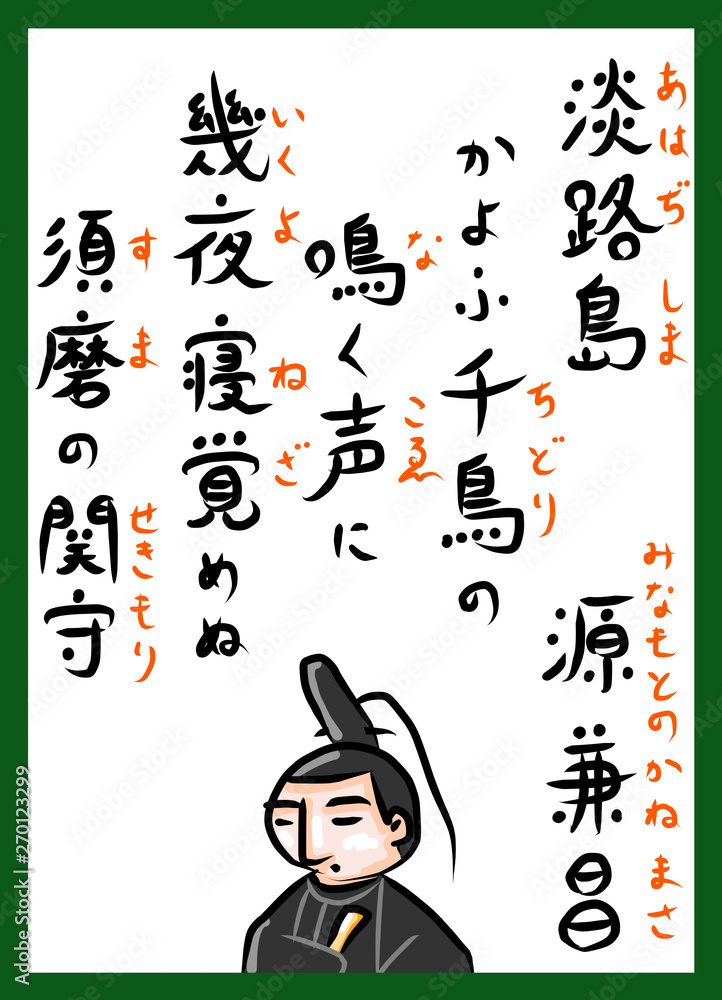 淡路島
あはぢしま
かよふ千鳥の
ちどり
鳴く声に
な
こゑ
幾夜寝覚めぬ
いくよ
ねざ
須磨の関守
すま
せきもり
源兼昌
みなもとのかねまさ
Adobe Stock | #270123299